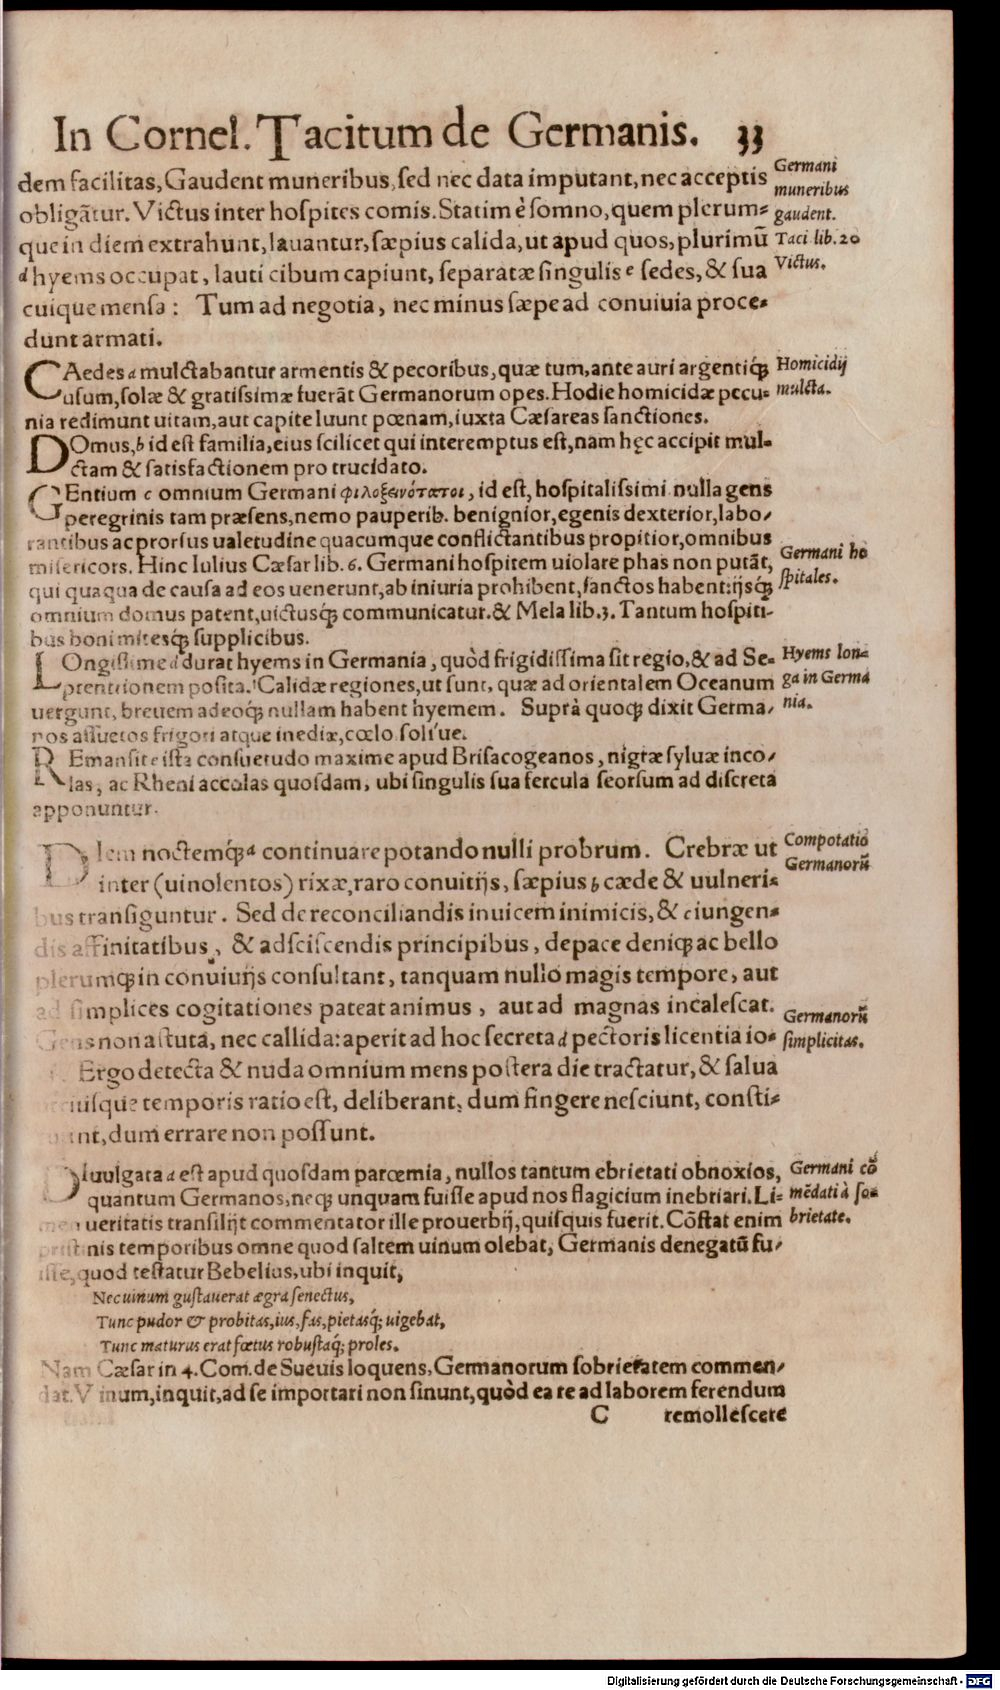 In Cornel. Tacitum de Germanis. 33
dem facilitas, Gaudent muneribus, sed nec data imputant, nec acceptis
Germani
muneribus
gaudent.
obligãtur. Victus inter hospites comis. Statim è somno, quem plerum⸗
que in diem extrahunt, lauantur, sæpius calida, ut apud quos, plurimũ
Taci lib. 20
d hyems occupat, lauti cibum capiunt, separatæ singulis e sedes, & sua
Victus.
cuique mensa: Tum ad negotia, nec minus sæpe ad conuiuia proce⸗
dunt armati.
CAedes a mulctabantur armentis & pecoribus, quæ tum, ante auri argentiq́;
Homicidij
mulcta.
usum, solæ & gratissimæ fuerãt Germanorum opes. Hodie homicidæ pecu⸗
nia redimunt uitam, aut capite luunt pœnam, iuxta Cæsareas sanctiones.
DOmus, b id est familia, eius scilicet qui interemptus est, nam hęc accipit mul⸗
ctam & satisfactionem pro trucidato.
GEntium c omnium Germani φιλοξενότατοι, id est, hospitalissimi. nulla gens
peregrinis tam præsens, nemo pauperib. benignior, egenis dexterior, labo⸗
rantibus ac prorsus ualetudine quacumque conflictantibus propitior, omnibus
misericors. Hinc Iulius Cæsar lib. 6. Germani hospitem uiolare phas non putãt,
Germani ho
spitales.
qui quaqua de causa ad eos uenerunt, ab iniuria prohibent, sanctos habent: ijsq́;
omnium domus patent, uictusq́; communicatur. & Mela lib. 3. Tantum hospiti⸗
bus boni mitesq́; supplicibus.
LOngissime d durat hyems in Germania, quòd frigidissima sit regio, & ad Se⸗
Hyems lon⸗
ga in Germa
nia.
ptentrionem posita. Calidæ regiones, ut sunt, quæ ad orientalem Oceanum
uergunt, breuem adeoq́; nullam habent hyemem. Suprà quoq́; dixit Germa⸗
nos assuetos frigori atque inediæ, cœlo soliúe.
REmansit e ista consuetudo maxime apud Brisacogeanos, nigræ syluæ inco⸗
las, ac Rheni accolas quosdam, ubi singulis sua fercula seorsum ad discreta
apponuntur.
DIem noctemq́; a continuare potando nulli probrum. Crebræ ut
Compotatio
Germanorũ
inter (uinolentos) rixæ, raro conuitijs, sæpius b cæde & uulneri⸗
bus transiguntur. Sed de reconciliandis inuicem inimicis, & c iungen⸗
dis affinitatibus, & adsciscendis principibus, de pace deniq́; ac bello
plerumq́; in conuiuijs consultant, tanquam nullo magis tempore, aut
ad simplices cogitationes pateat animus, aut ad magnas incalescat.
Germanorũ
simplicitas.
Gens non astuta, nec callida: aperit ad hoc secreta d pectoris licentia io⸗
Ergo detecta & nuda omnium mens postera die tractatur, & salua
utriusque temporis ratio est, deliberant, dum fingere nesciunt, consti⸗
tuunt, dum errare non possunt.
DIuulgata a est apud quosdam parœmia, nullos tantum ebrietati obnoxios,
Germani cõ
mẽdati à so⸗
brietate.
quantum Germanos, neq́; unquam fuisse apud nos flagicium inebriari. Li⸗
men ueritatis transilijt commentator ille prouerbij, quisquis fuerit. Cõstat enim
pristinis temporibus omne quod saltem uinum olebat, Germanis denegatũ fu⸗
isse, quod testatur Bebelius, ubi inquit,
Nec uinum gustauerat ægra senectus,
Tunc pudor & probitas, ius, fas, pietasq́; uigebat,
Tunc maturus erat fœtus robustaq́; proles.
Nam Cæsar in 4. Com. de Sueuis loquens, Germanorum sobrietatem commen⸗
dat. Vinum, inquit, ad se importari non sinunt, quòd ea re ad laborem ferendum
C remollescere
Digitalisierung gefördert durch die Deutsche Forschungsgemeinschaft - DFG